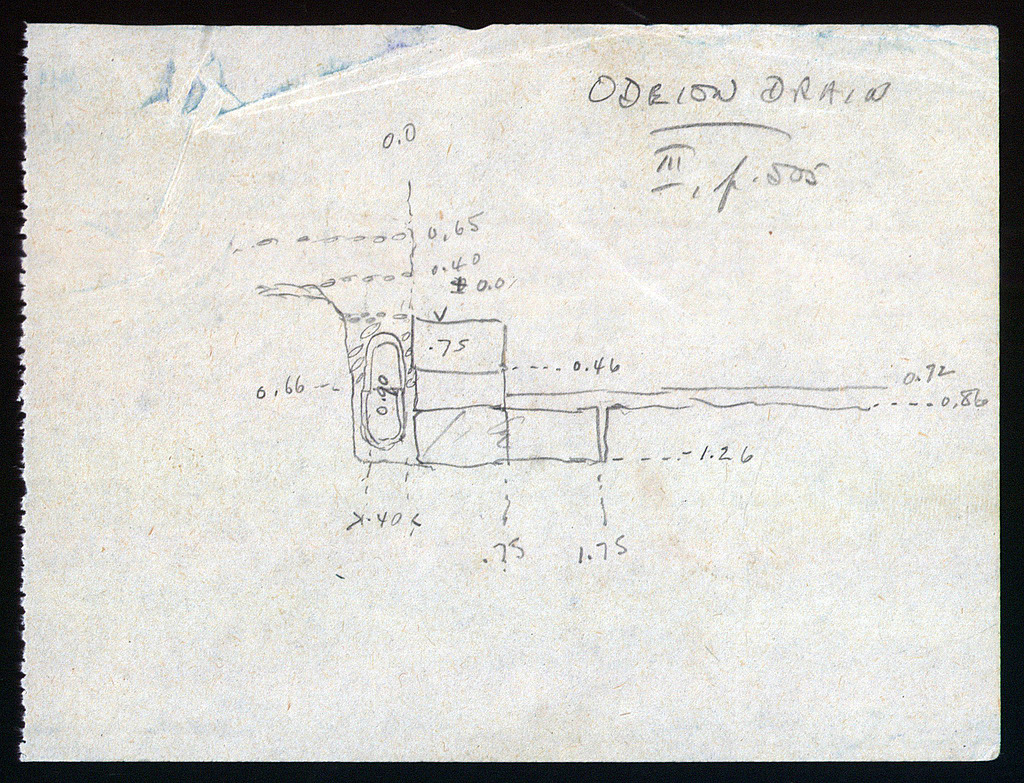 ODEION DRAIN
III, p. 505
0.0
0.65
0.40
± 0.0
.75
0.46
0.66
0.90
0.72
0.86
1.26
.40
.75
1.75